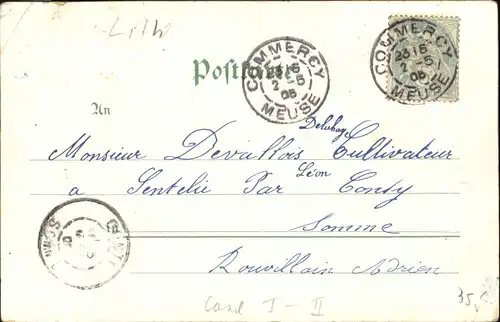 Lith
Postkarte
COMMERCY
23 15
2 - 5
05
MEUSE
COMMERCY
23 15
2 - 5
05
MEUSE
An
Delahaye
Monsieur Devallois Cultivateur
Léon
a Sentelie Par Conty
Somme
Rouvillain Adrien
CONTY
SOMME
I - II
35,